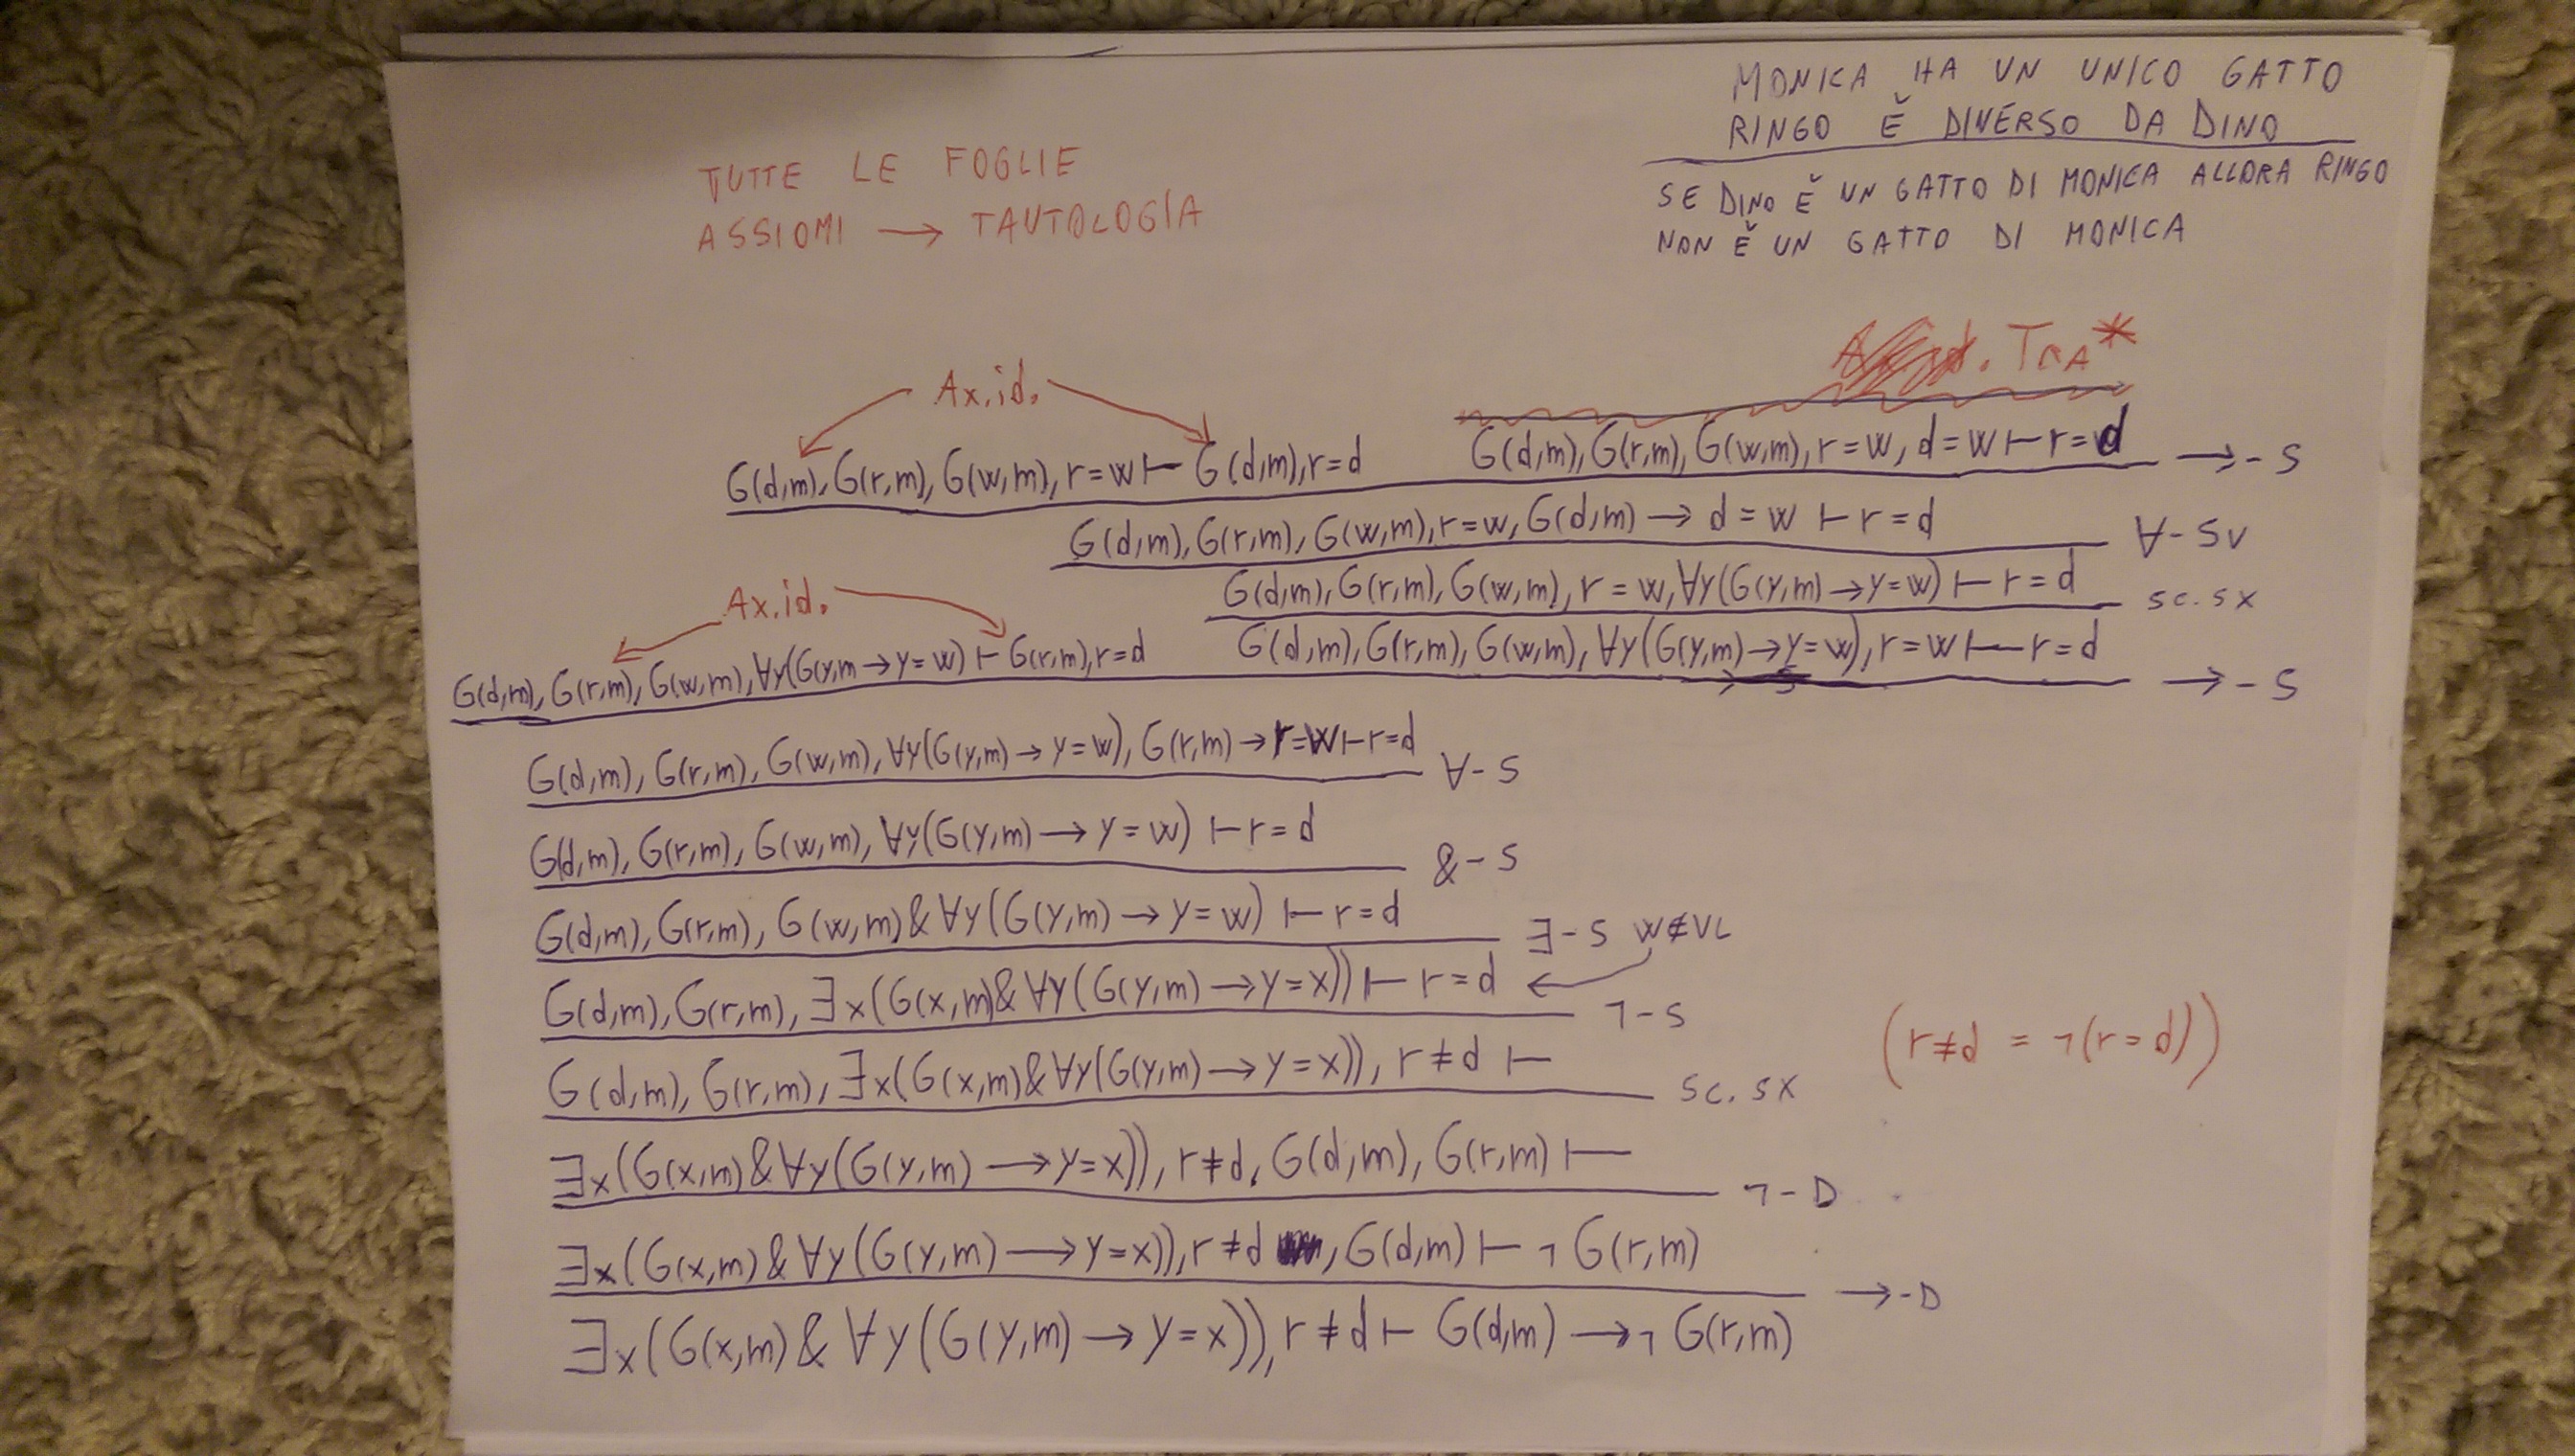 MONICA HA UN UNICO GATTO
RINGO È DIVERSO DA DINO
SE DINO È UN GATTO DI MONICA ALLORA RINGO
NON È UN GATTO DI MONICA
TUTTE LE FOGLIE
ASSIOMI → TAUTOLOGIA
. TRA*
Ax.id.
G(d,m), G(r,m), G(w,m), r=w ⊢ G(d,m), r=d
G(d,m), G(r,m), G(w,m), r=w, d=w ⊢ r=d
→-S
G(d,m), G(r,m), G(w,m), r=w, G(d,m) → d=w ⊢ r=d
∀-Sv
G(d,m), G(r,m), G(w,m), r=w, ∀y(G(y,m) → y=w) ⊢ r=d
sc.sx
Ax.id.
G(d,m), G(r,m), G(w,m), ∀y(G(y,m → y=w) ⊢ G(r,m), r=d
G(d,m), G(r,m), G(w,m), ∀y(G(y,m) → y=w), r=w ⊢ r=d
→-S
G(d,m), G(r,m), G(w,m), ∀y(G(y,m) → y=w), G(r,m) → r=w ⊢ r=d
∀-S
G(d,m), G(r,m), G(w,m), ∀y(G(y,m) → y=w) ⊢ r=d
&-S
G(d,m), G(r,m), G(w,m) & ∀y(G(y,m) → y=w) ⊢ r=d
∃-S w∉VL
G(d,m), G(r,m), ∃x(G(x,m) & ∀y(G(y,m) → y=x)) ⊢ r=d
¬-S
(r≠d = ¬(r=d))
G(d,m), G(r,m), ∃x(G(x,m) & ∀y(G(y,m) → y=x)), r≠d ⊢
sc.sx
∃x(G(x,m) & ∀y(G(y,m) → y=x)), r≠d, G(d,m), G(r,m) ⊢
¬-D
∃x(G(x,m) & ∀y(G(y,m) → y=x)), r≠d, G(d,m) ⊢ ¬G(r,m)
→-D
∃x(G(x,m) & ∀y(G(y,m) → y=x)), r≠d ⊢ G(d,m) → ¬G(r,m)